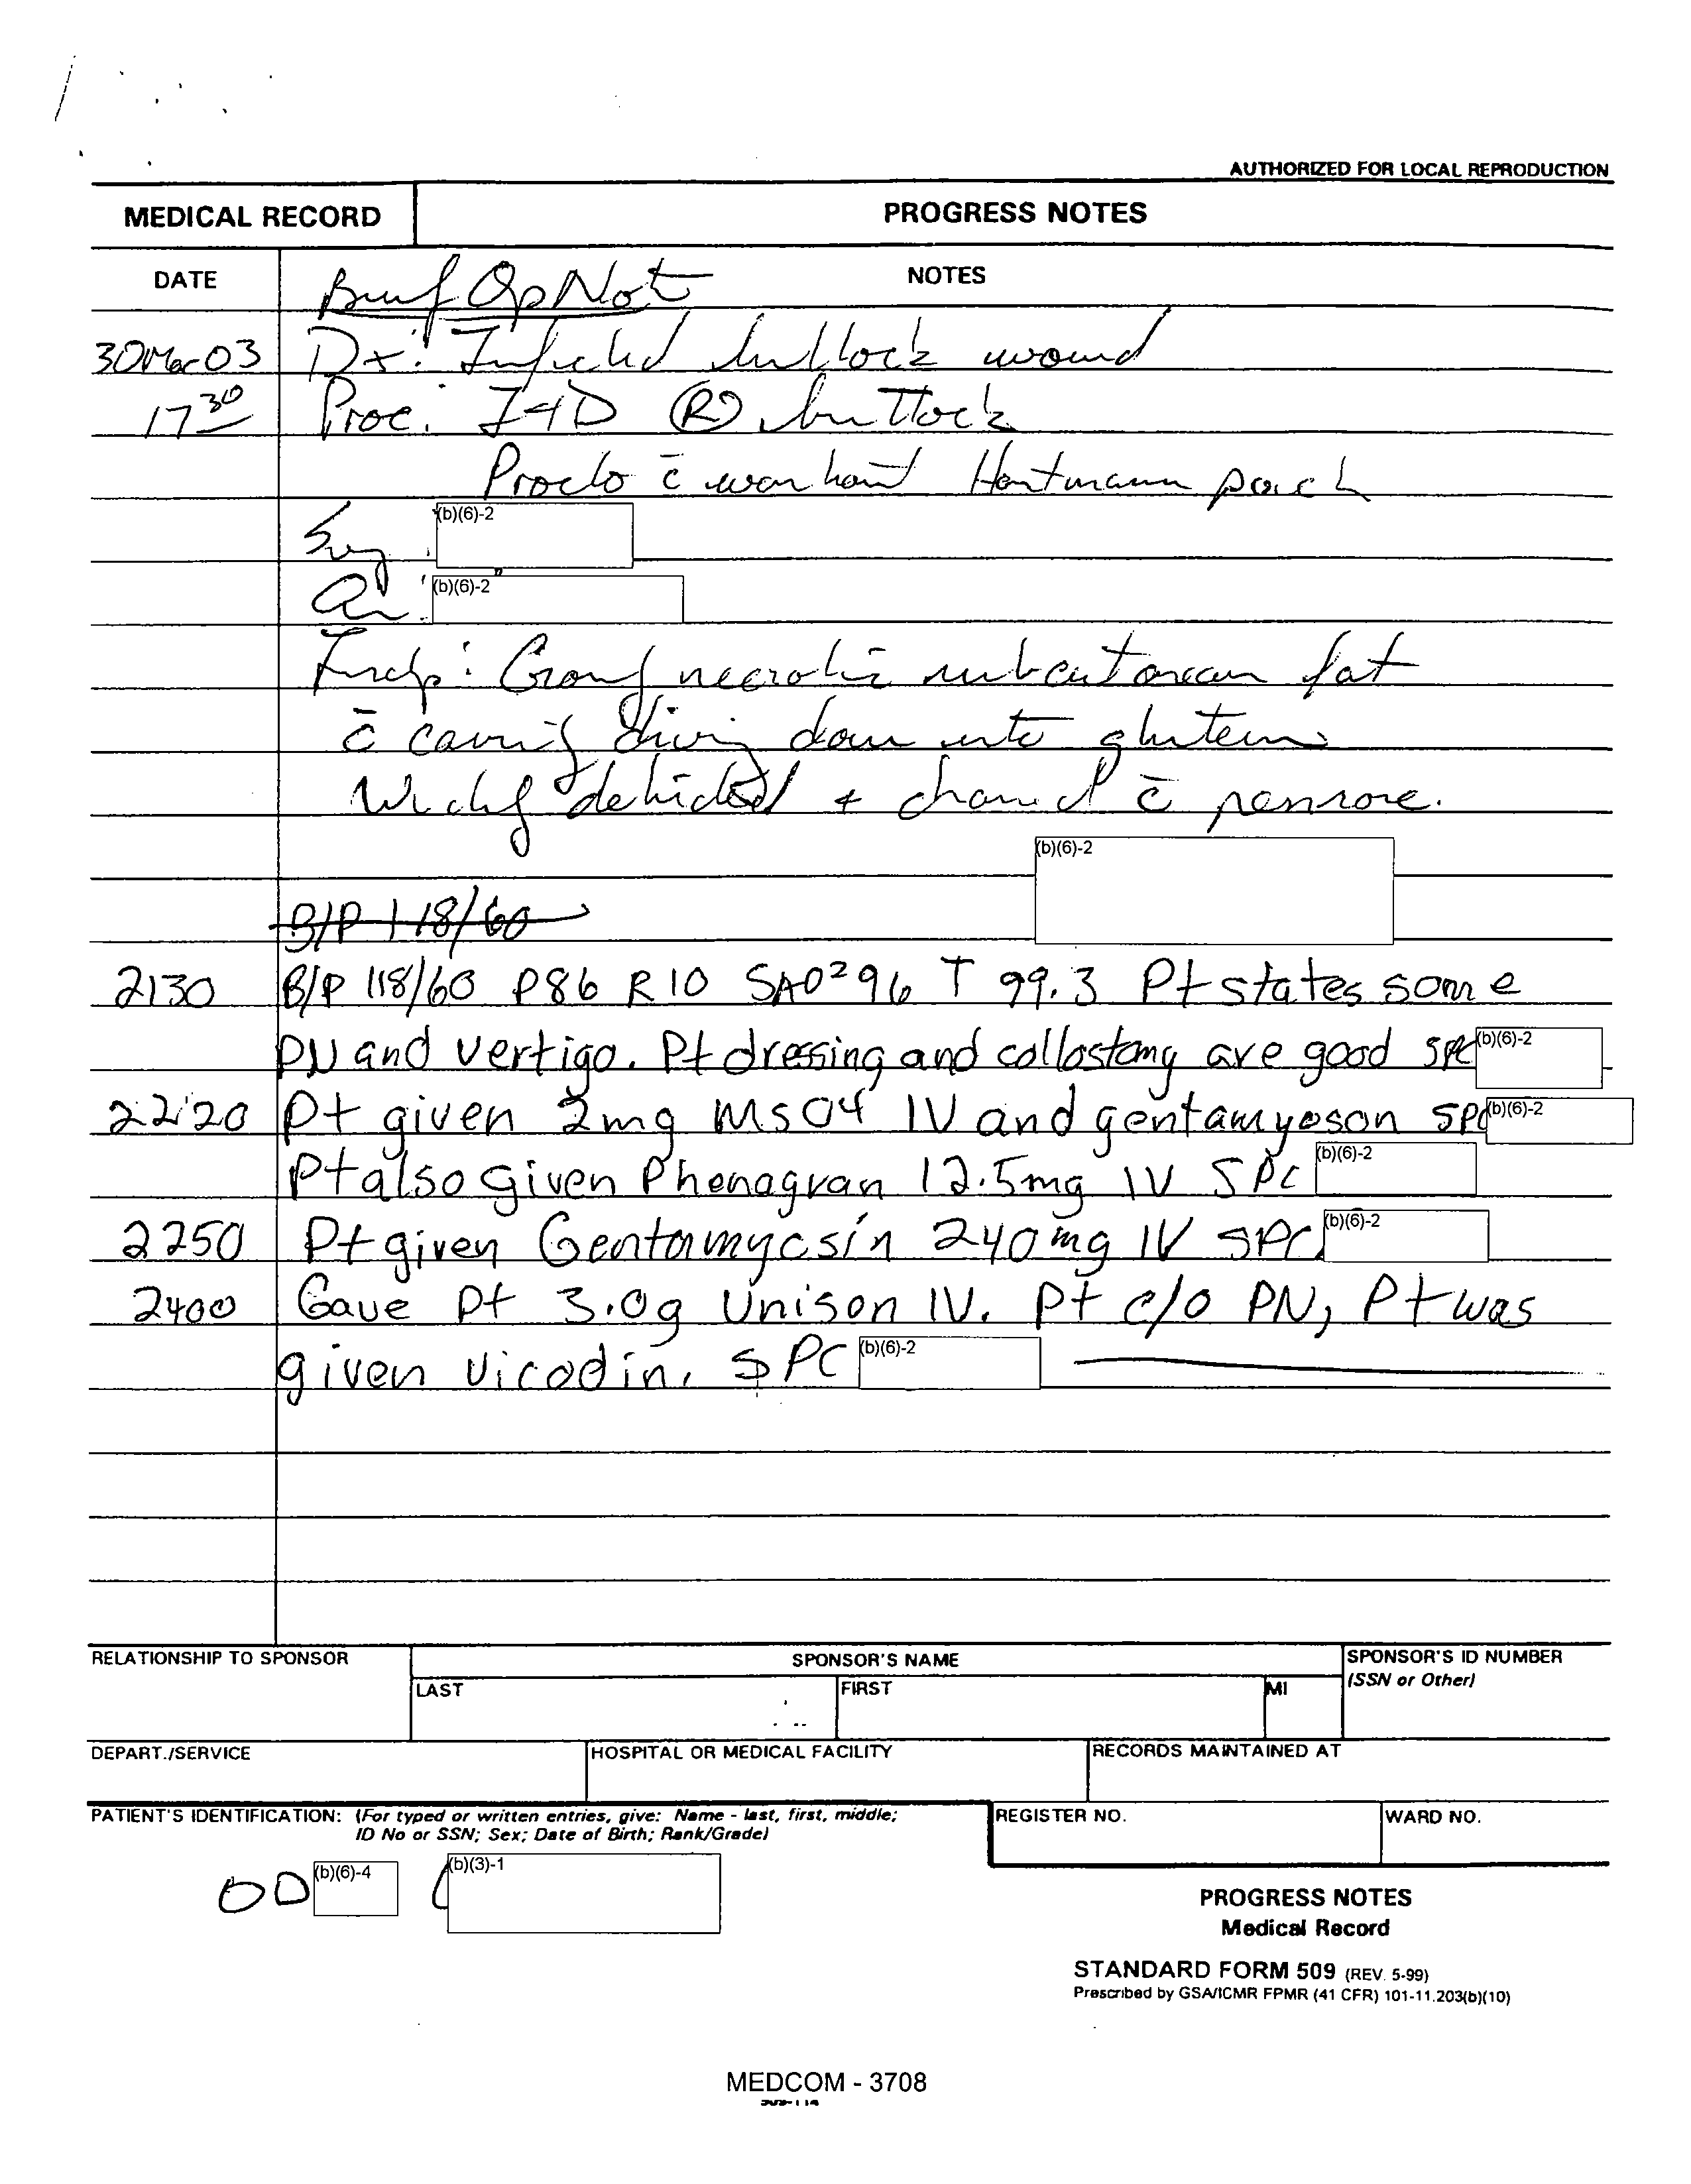 AUTHORIZED FOR LOCAL REPRODUCTION
MEDICAL RECORD
PROGRESS NOTES
DATE
NOTES
Brief Op Note
30Mar03 Dx: Infected buttock wound
17 30 Proc: I+D (R) buttock
Procto c̄ washout Hartmann pouch
Surg : (b)(6)-2
(b)(6)-2
Findgs: necrotic subcutaneous fat
c̄ cavity diving down into gluteus
Widely debrided + drained c̄ penrose.
(b)(6)-2
B/P 118/60
2130 B/P 118/60 P86 R10 SAO²96 T 99.3 Pt states some
PN and vertigo. Pt dressing and collostomy are good SPC (b)(6)-2
2220 Pt given 2mg MSO4 IV and gentamyoson SPC (b)(6)-2
Pt also given Phenagran 12.5mg IV SPC (b)(6)-2
2250 Pt given Gentamycsin 240mg IV SPC (b)(6)-2
2400 Gave Pt 3.0g Unison IV. Pt c/o PN, Pt was
given vicodin. SPC (b)(6)-2
RELATIONSHIP TO SPONSOR
SPONSOR'S NAME
SPONSOR'S ID NUMBER
(SSN or Other)
LAST
FIRST
MI
DEPART./SERVICE
HOSPITAL OR MEDICAL FACILITY
RECORDS MAINTAINED AT
PATIENT'S IDENTIFICATION: (For typed or written entries, give: Name - last, first, middle;
ID No or SSN; Sex; Date of Birth; Rank/Grade)
REGISTER NO.
WARD NO.
OD (b)(6)-4 (b)(3)-1
PROGRESS NOTES
Medical Record
STANDARD FORM 509 (REV. 5-99)
Prescribed by GSA/ICMR FPMR (41 CFR) 101-11.203(b)(10)
MEDCOM - 3708